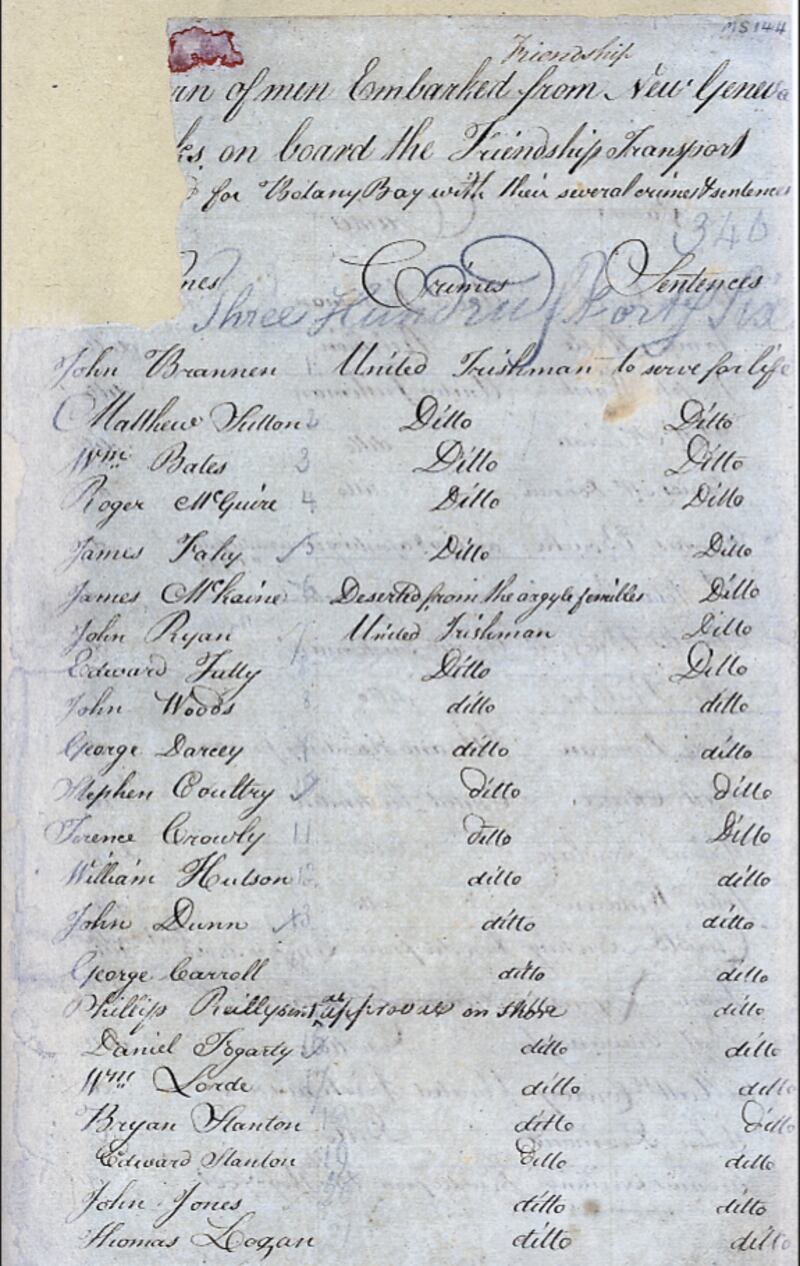 MS 144
Friendship
an of men Embarked from New Geneva
ks on board the Friendship Transport
for Botany Bay with their several crimes & sentences
346
mes Crimes Sentences
Three Hundred Forty Six
John Brannen 1 United Irishman to serve for life
Matthew Sutton 2 Ditto Ditto
Wm Bates 3 Ditto Ditto
Roger McGuire 4 Ditto Ditto
James Fahy 5 Ditto Ditto
James McKaine Deserted from the argyle fencibles Ditto
John Ryan 7 United Irishman Ditto
Edward Tully Ditto Ditto
John Woods 8 ditto ditto
George Darcey ditto ditto
Stephen Coultry ditto ditto
Terence Crowly 11 ditto Ditto
William Hutson 12 ditto ditto
John Dunn 13 ditto ditto
George Carroll ditto ditto
Phillip Reilly sent as approver on shore ditto
Daniel Fogarty ditto ditto
Wm Lorde ditto ditto
Bryan Stanton ditto ditto
Edward Stanton 19 ditto ditto
John Jones ditto ditto
Thomas Logan ditto ditto